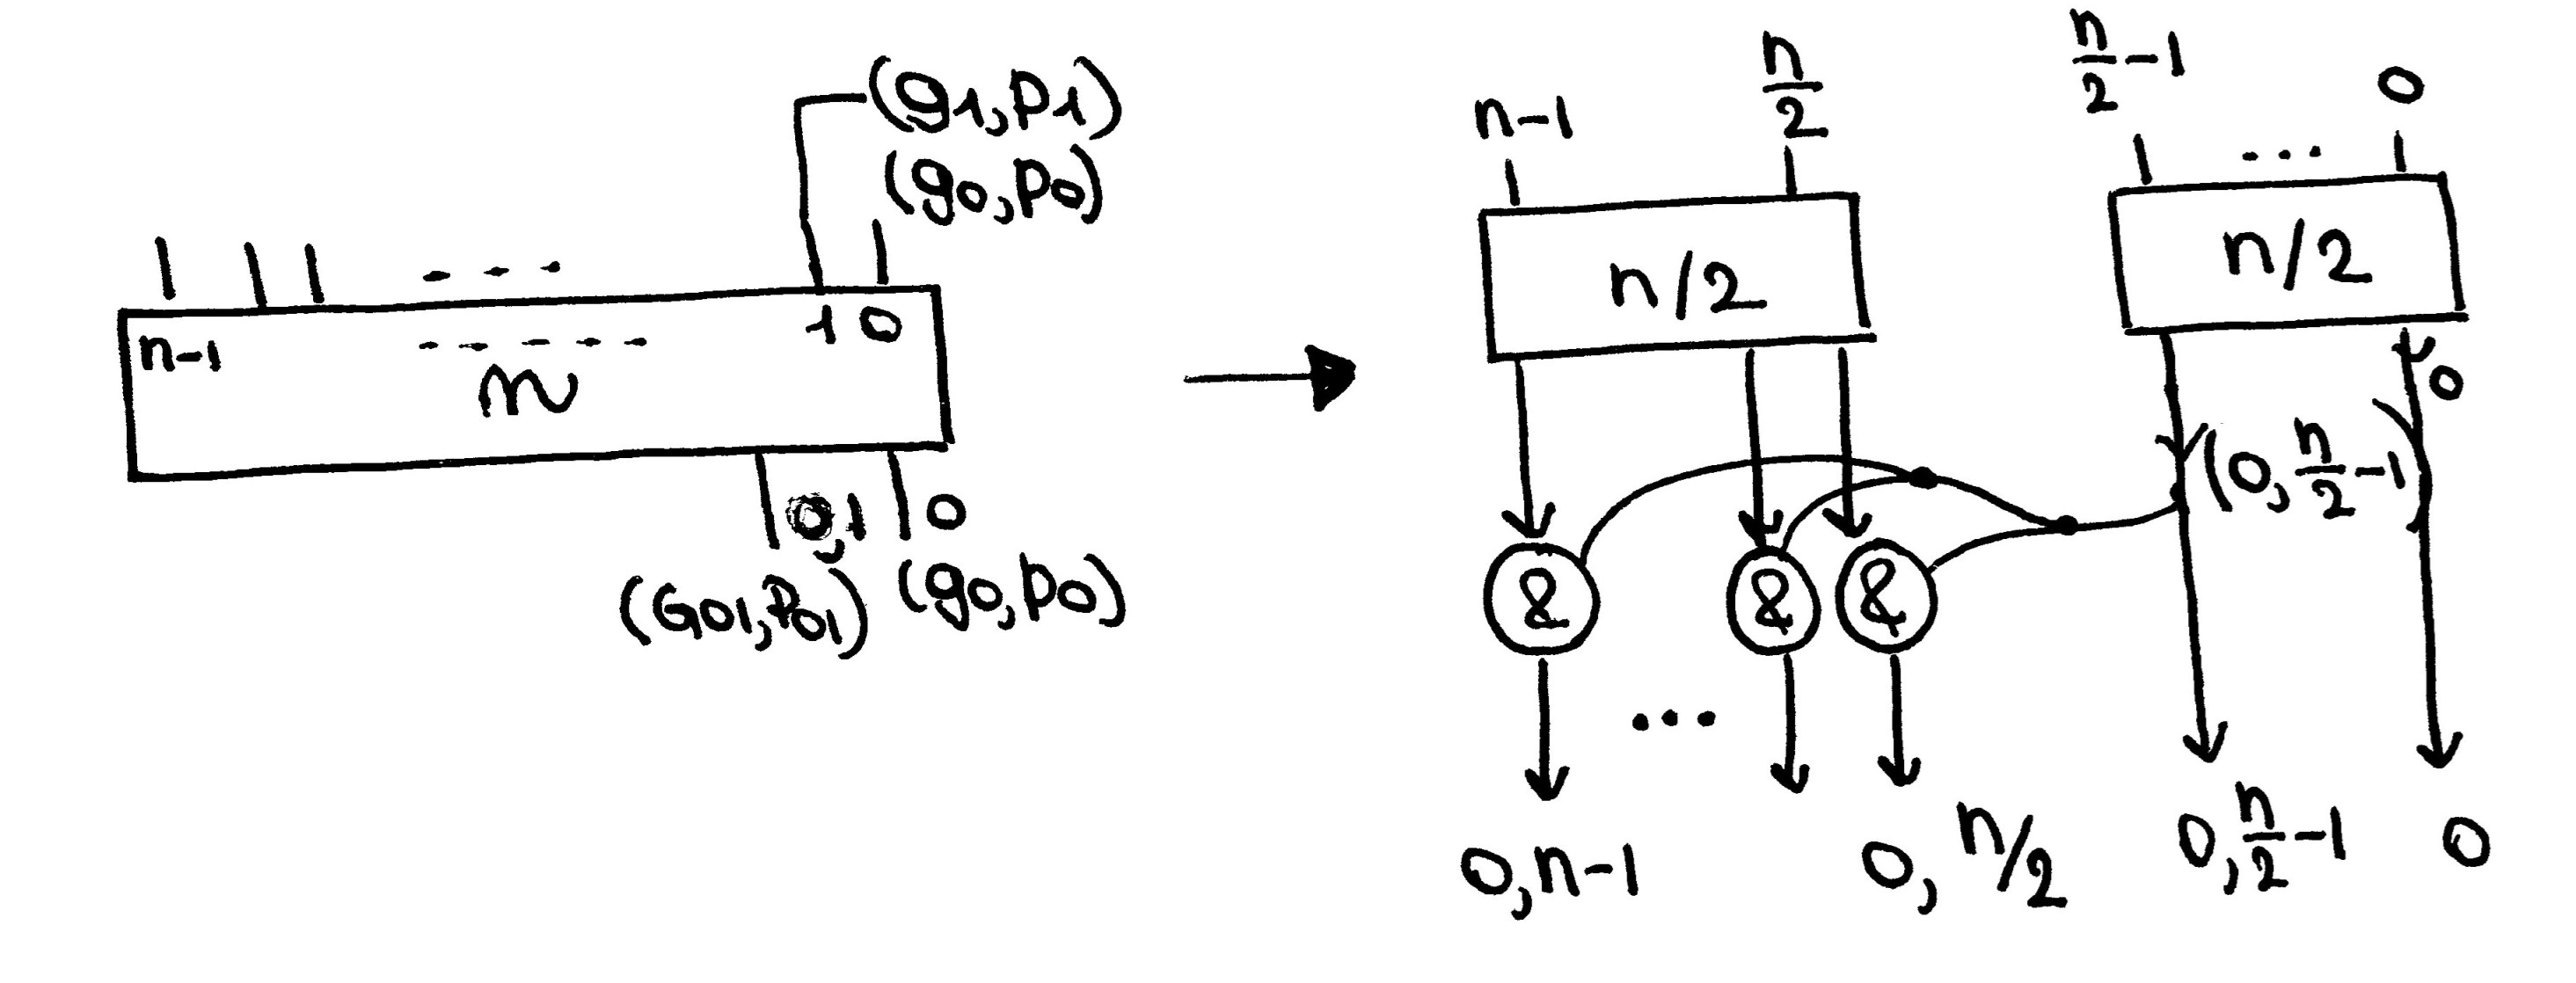 (g1,p1)
(g0,p0)
n-1
1 0
n
0,1
0
(G01,P01)
(g0,p0)
n-1
n/2
n/2-1
0
n/2
n/2
0
(0,n/2-1)
&
&
&
0,n-1
0,n/2
0,n/2-1
0